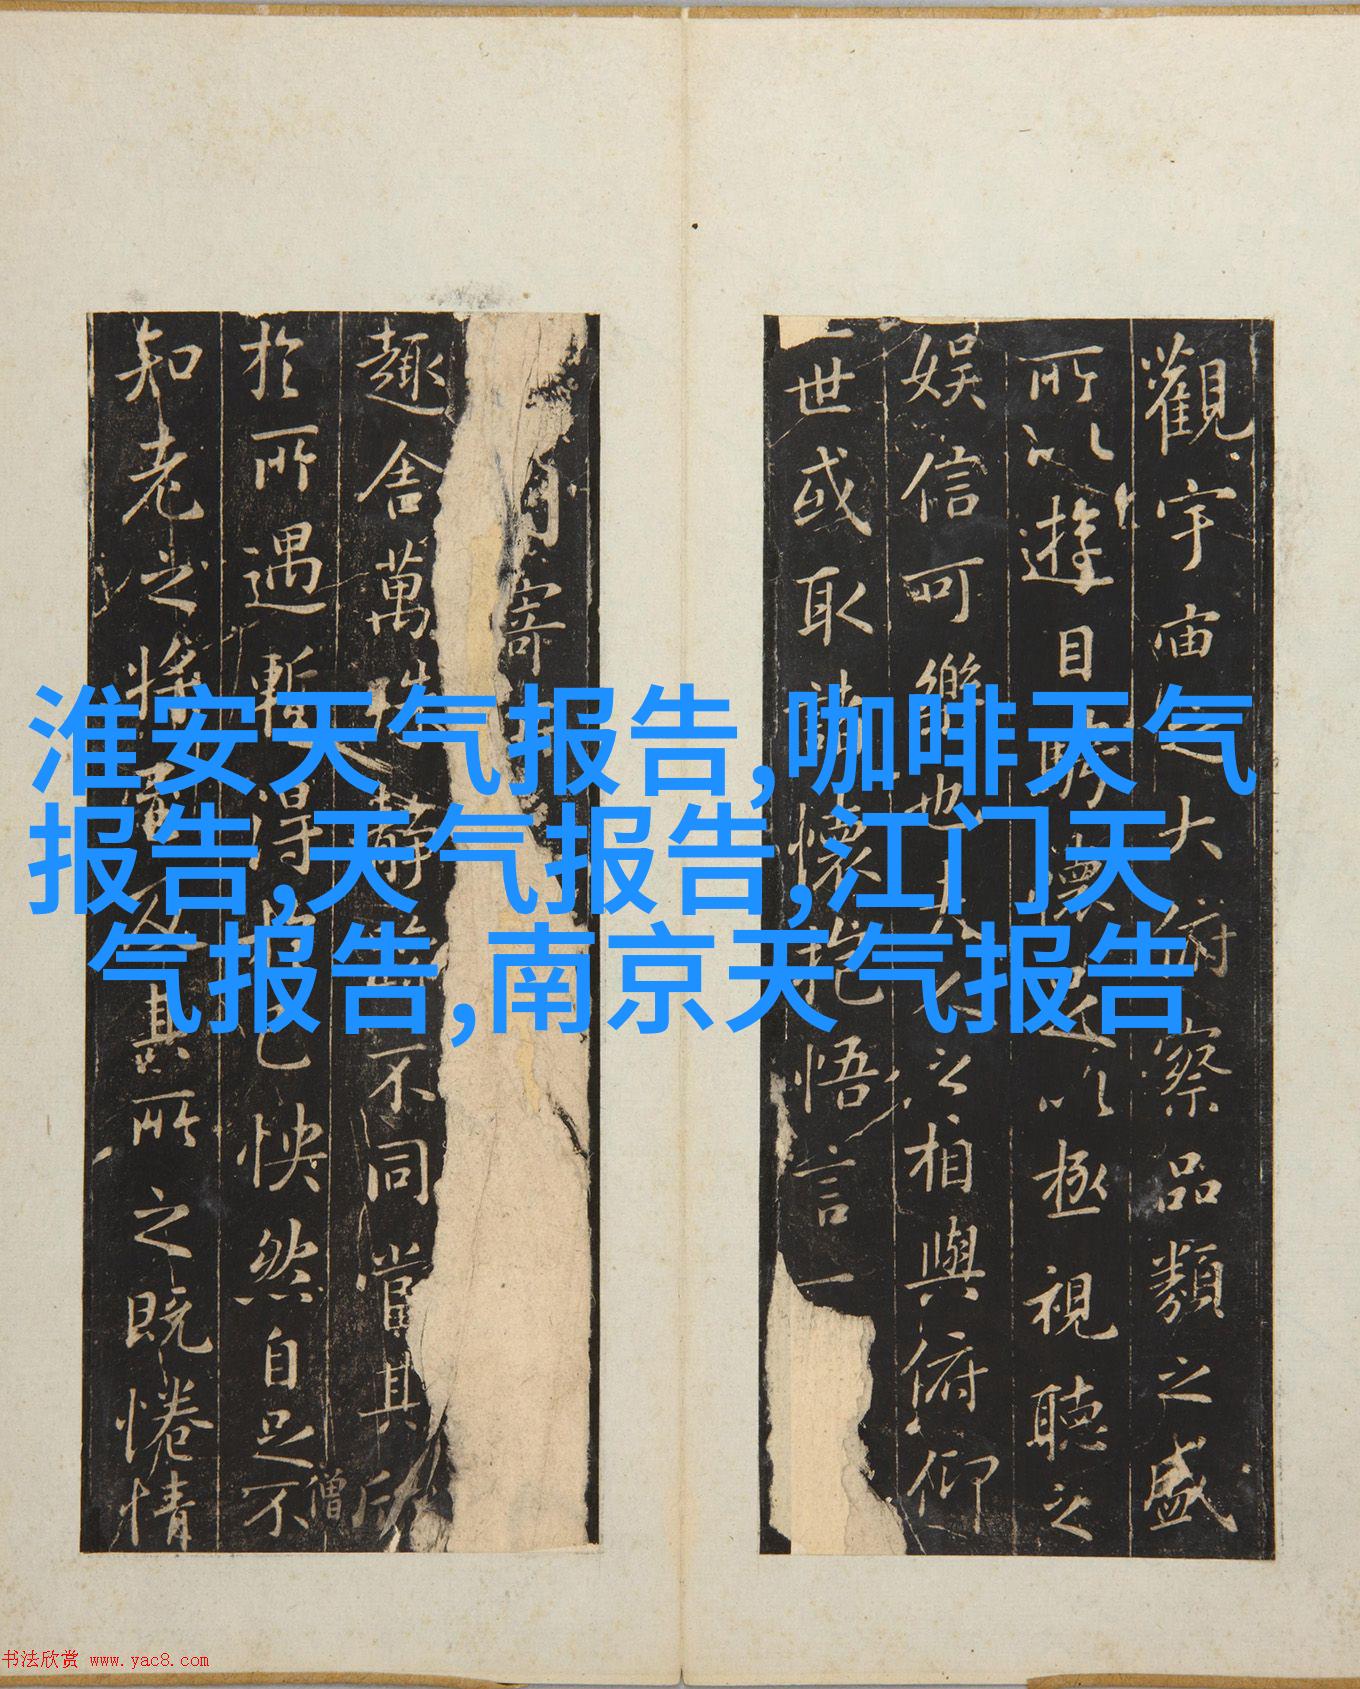 淮安天气报告,咖啡天气
报告,天气报告,江门天
气报告,南京天气报告
觀宇宙之大俯察品類之盛
所以遊目騁懷足以極視聽之
娛信可樂也夫人之相與俯仰
一世或取諸懷抱悟言一
寄
趣舍萬殊靜躁不同當其欣
於所遇暫得於己怏然自足不
僧
知老之將至及其所之既惓情
书法欣赏 www.yac8.com